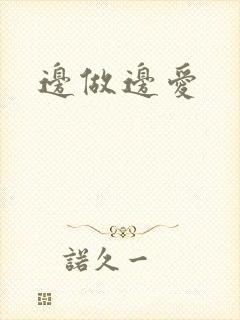 邊做邊愛
諾久一